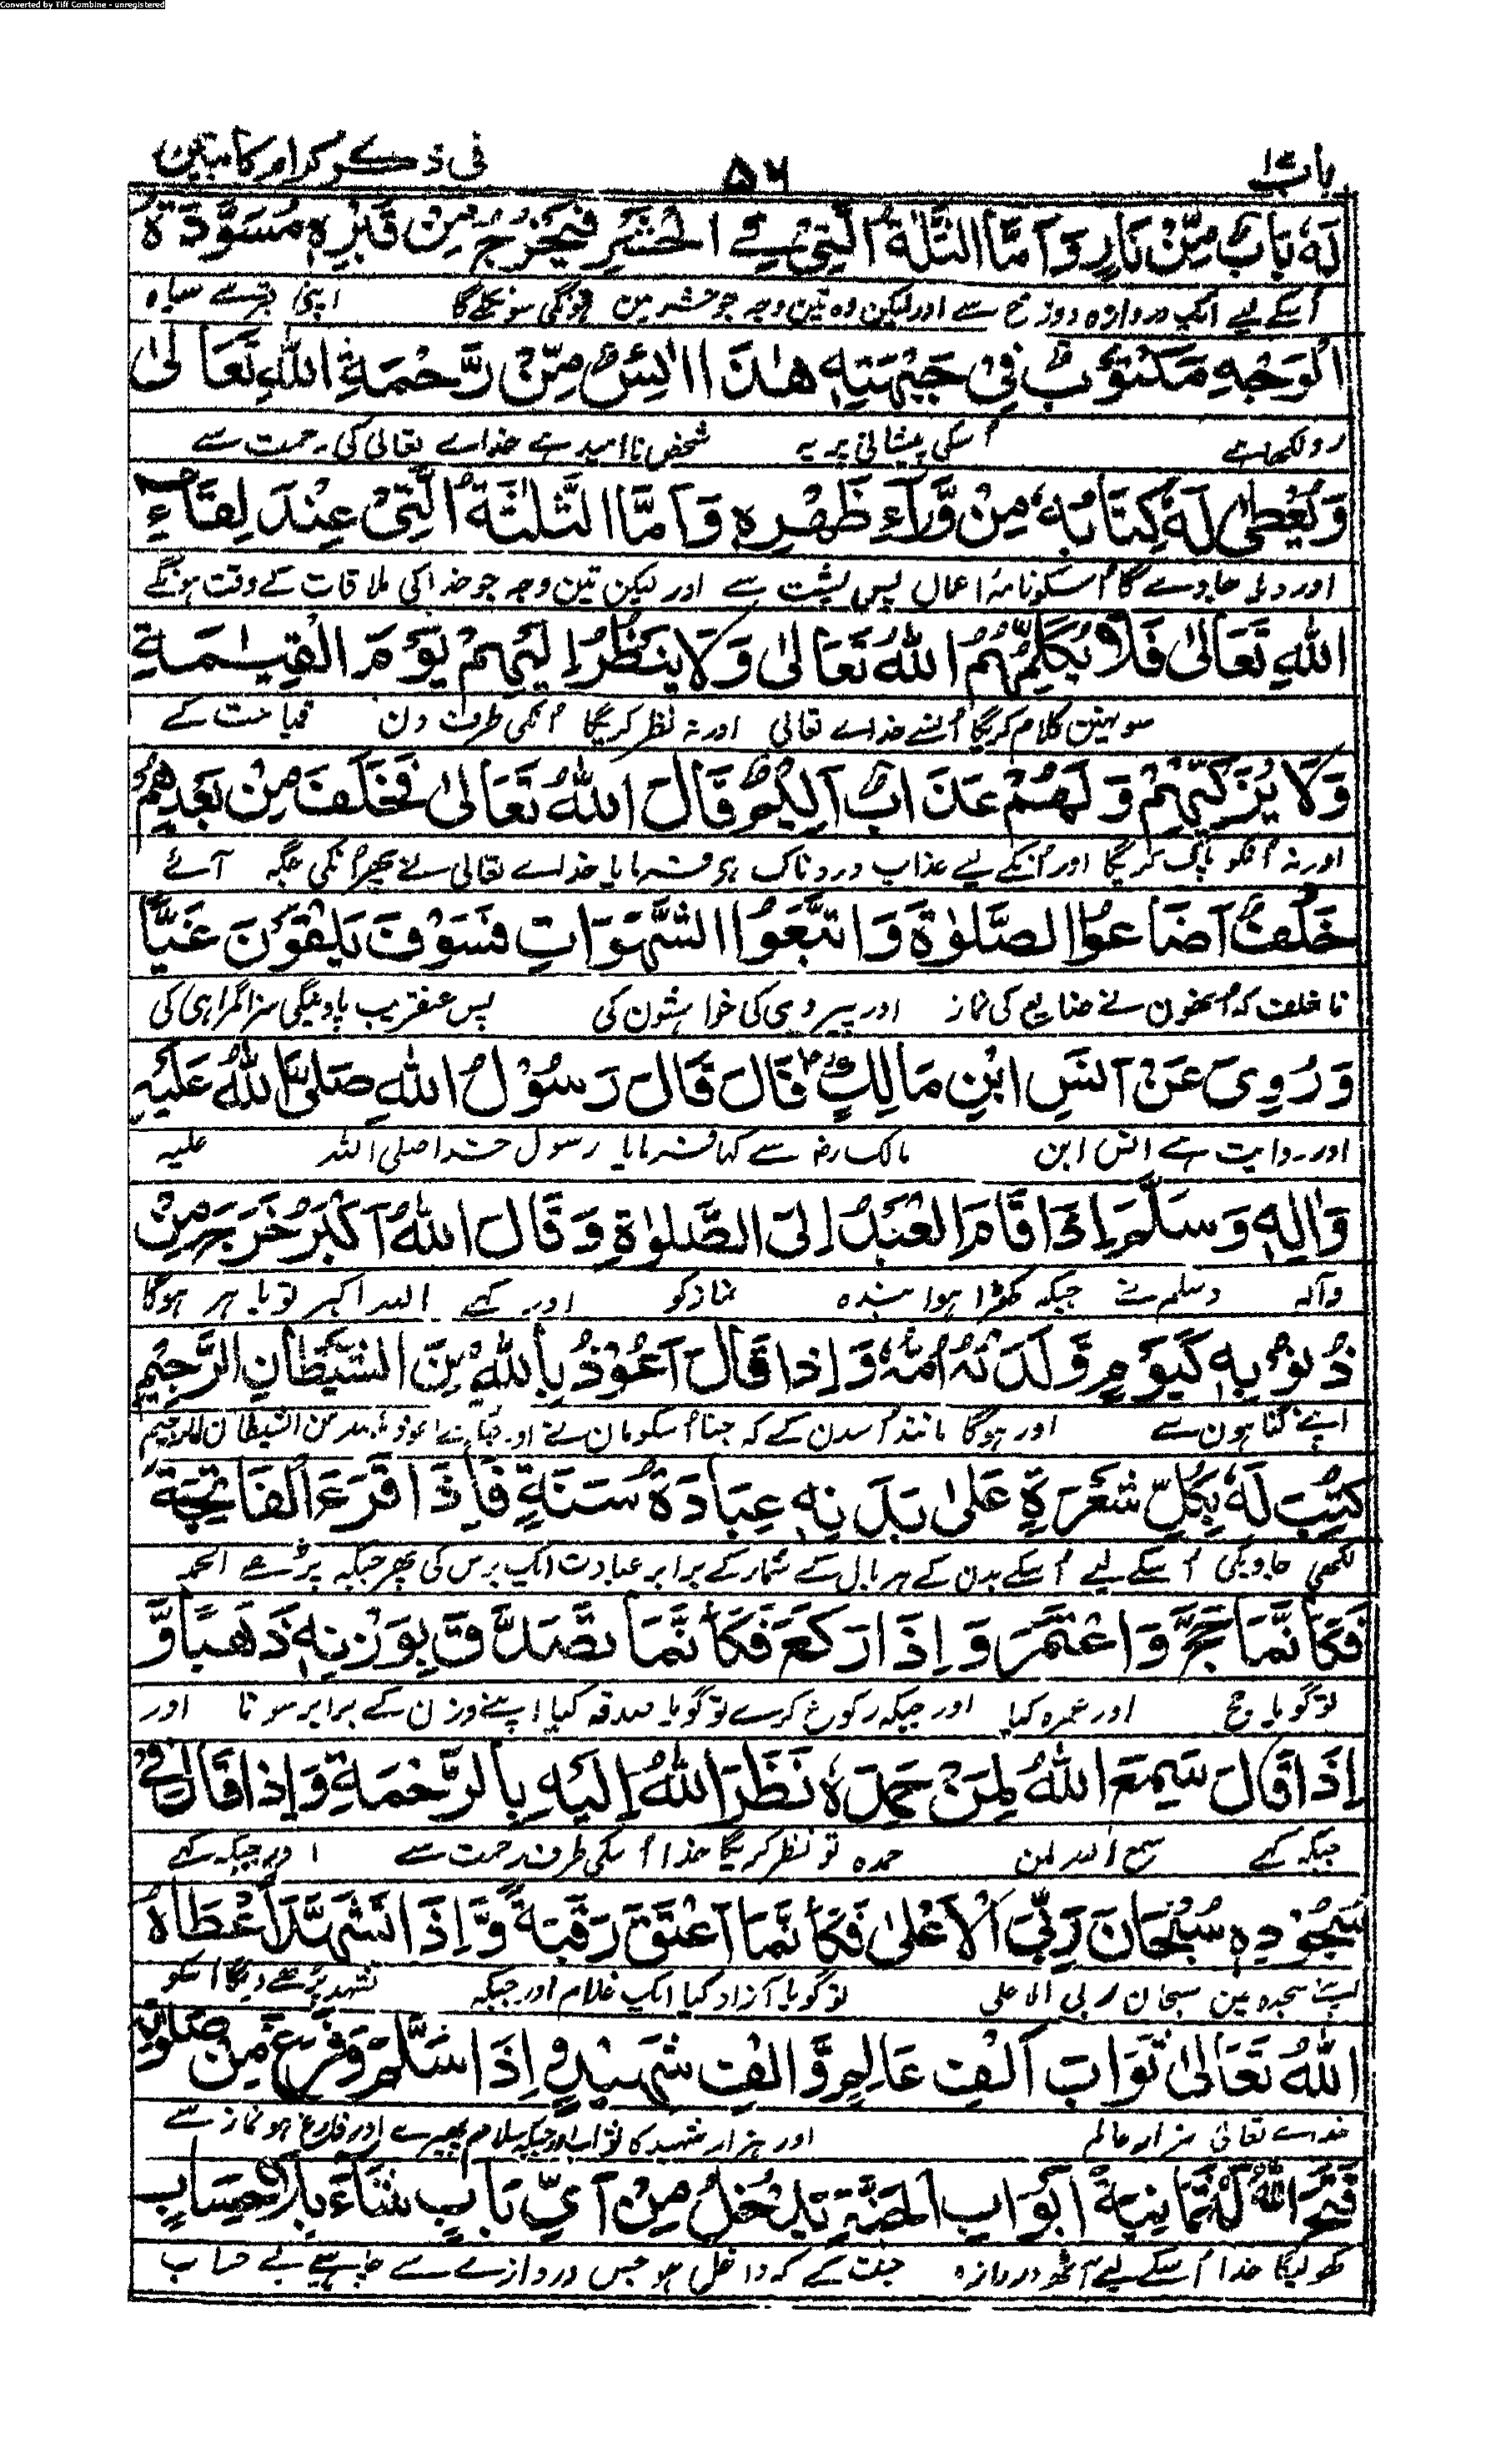 Converted by Tiff Combine - unregistered
باب ۱۲ ۵۶ فی ذکر کرام کاتبین
لَهٗ بَابٌ مِّنْ نَارٍ وَاَمَّا الثَّلٰثَةُ الَّتِیْ فِی الْحَشْرِ فَیَخْرُجُ مِنْ قَبْرِهٖ مُسْوَدَّةً
اُسکے لیے ایک دروازہ دوزخ سے اور لیکن وہ تین وجہ جو حشر مین ہونگی سو نکلے گا اپنی قبر سے سیاہ
الْوَجْهِ مَكْتُوْبٌ فِیْ جَبْهَتِهٖ هٰذَا اٰئِسٌ مِّنْ رَّحْمَةِ اللّٰهِ تَعَالٰی
رو لکھا ہے اُسکی پیشانی پر یہ شخص نا امید ہے خداے تعالی کی رحمت سے
وَیُعْطٰی لَهٗ كِتَابُهٗ مِنْ وَّرَآءِ ظَهْرِهٖ وَاَمَّا الثَّلٰثَةُ الَّتِیْ عِنْدَ لِقَآءِ
اور دیا جاوے گا اُسکو نامۂ اعمال پس پشت سے اور لیکن تین وجہ جو خدا کی ملاقات کے وقت ہونگے
اللّٰهِ تَعَالٰی فَلَا یُكَلِّمُهُمُ اللّٰهُ تَعَالٰی وَلَا یَنْظُرُ اِلَیْهِمْ یَوْمَ الْقِیٰمَةِ
سو نہین کلام کریگا اُنسے خداے تعالی اور نہ نظر کریگا اُنکی طرف دن قیامت کے
وَلَا یُزَكِّیْهِمْ وَلَهُمْ عَذَابٌ اَلِیْمٌ قَالَ اللّٰهُ تَعَالٰی فَخَلَفَ مِنْ بَعْدِهِمْ
اور نہ اُنکو پاک کریگا اور اُنکے لیے عذاب دردناک ہے فرمایا خداے تعالی نے پھر اُنکی جگہ آئے
خَلْفٌ اَضَاعُوا الصَّلٰوةَ وَاتَّبَعُوا الشَّهَوَاتِ فَسَوْفَ یَلْقَوْنَ غَیًّا
ناخلف کہ اُنھون نے ضایع کی نماز اور پیروی کی خواہشون کی پس عنقریب پاوینگے سزا گمراہی کی
وَرُوِیَ عَنْ اَنَسِ ابْنِ مَالِكٍ رض قَالَ قَالَ رَسُوْلُ اللّٰهِ صَلَّی اللّٰهُ عَلَیْهِ
اور روایت ہے انس ابن مالک رض سے کہا فرمایا رسول خدا صلی اللہ علیہ
وَاٰلِهٖ وَسَلَّمَ اِذَا قَامَ الْعَبْدُ اِلَی الصَّلٰوةِ وَقَالَ اللّٰهُ اَكْبَرُ خَرَجَ مِنْ
وآلہ وسلم نے جبکہ کھڑا ہوا بندہ نماز کو اور کہے اللہ اکبر تو باہر ہوگا
ذُنُوْبِهٖ كَیَوْمٍ وَّلَدَتْهُ اُمُّهٗ وَاِذَا قَالَ اَعُوْذُ بِاللّٰهِ مِنَ الشَّیْطَانِ الرَّجِیْمِ
اپنے گناہون سے اور ہوگا مانند اُسدن کے کہ جنا اُسکو مان نے اور جبکہ کہے اعوذ باللہ من الشیطان الرجیم
كُتِبَ لَهٗ بِكُلِّ شَعْرَةٍ عَلٰی بَدَنِهٖ عِبَادَةُ سَنَةٍ فَاِذَا قَرَءَ الْفَاتِحَةَ
لکھی جاویگی اُسکے لیے اُسکے بدن کے ہر بال کے شمار کے برابر عبادت ایک برس کی پھر جبکہ پڑھے الحمد
فَكَاَنَّمَا حَجَّ وَاعْتَمَرَ وَاِذَا رَكَعَ فَكَاَنَّمَا تَصَدَّقَ بِوَزْنِهٖ ذَهَبًا وَّ
تو گویا حج اور عمرہ کیا اور جبکہ رکوع کرے تو گویا صدقہ کیا اپنے وزن کے برابر سونا اور
اِذَا قَالَ سَمِعَ اللّٰهُ لِمَنْ حَمِدَهٗ نَظَرَ اللّٰهُ اِلَیْهِ بِالرَّحْمَةِ وَاِذَا قَالَ فِیْ
جبکہ کہے سمع اللہ لمن حمدہ تو نظر کریگا خدا اُسکی طرف رحمت سے اور جبکہ کہے
سُجُوْدِهٖ سُبْحَانَ رَبِّیَ الْاَعْلٰی فَكَاَنَّمَا اَعْتَقَ رَقَبَةً وَّاِذَا تَشَهَّدَ اَعْطَاهُ
اپنے سجدہ مین سبحان ربی الاعلی تو گویا آزاد کیا ایک غلام اور جبکہ تشہد پڑھے دیگا اُسکو
اللّٰهُ تَعَالٰی ثَوَابَ اَلْفِ عَالِمٍ وَّاَلْفِ شَهِیْدٍ وَاِذَا سَلَّمَ وَفَرَغَ مِنْ صَلٰوتِهٖ
خداے تعالی ہزار عالم اور ہزار شہید کا ثواب اور جبکہ سلام پھیرے اور فارغ ہو نماز سے
فَتَحَ اللّٰهُ لَهٗ ثَمَانِیَةَ اَبْوَابِ الْجَنَّةِ یَدْخُلُ مِنْ اَیِّ بَابٍ شَآءَ بِلَا حِسَابٍ
کھولیگا خدا اُسکے لیے آٹھ دروازہ جنت کے کہ داخل ہو جس دروازے سے چاہے بے حساب